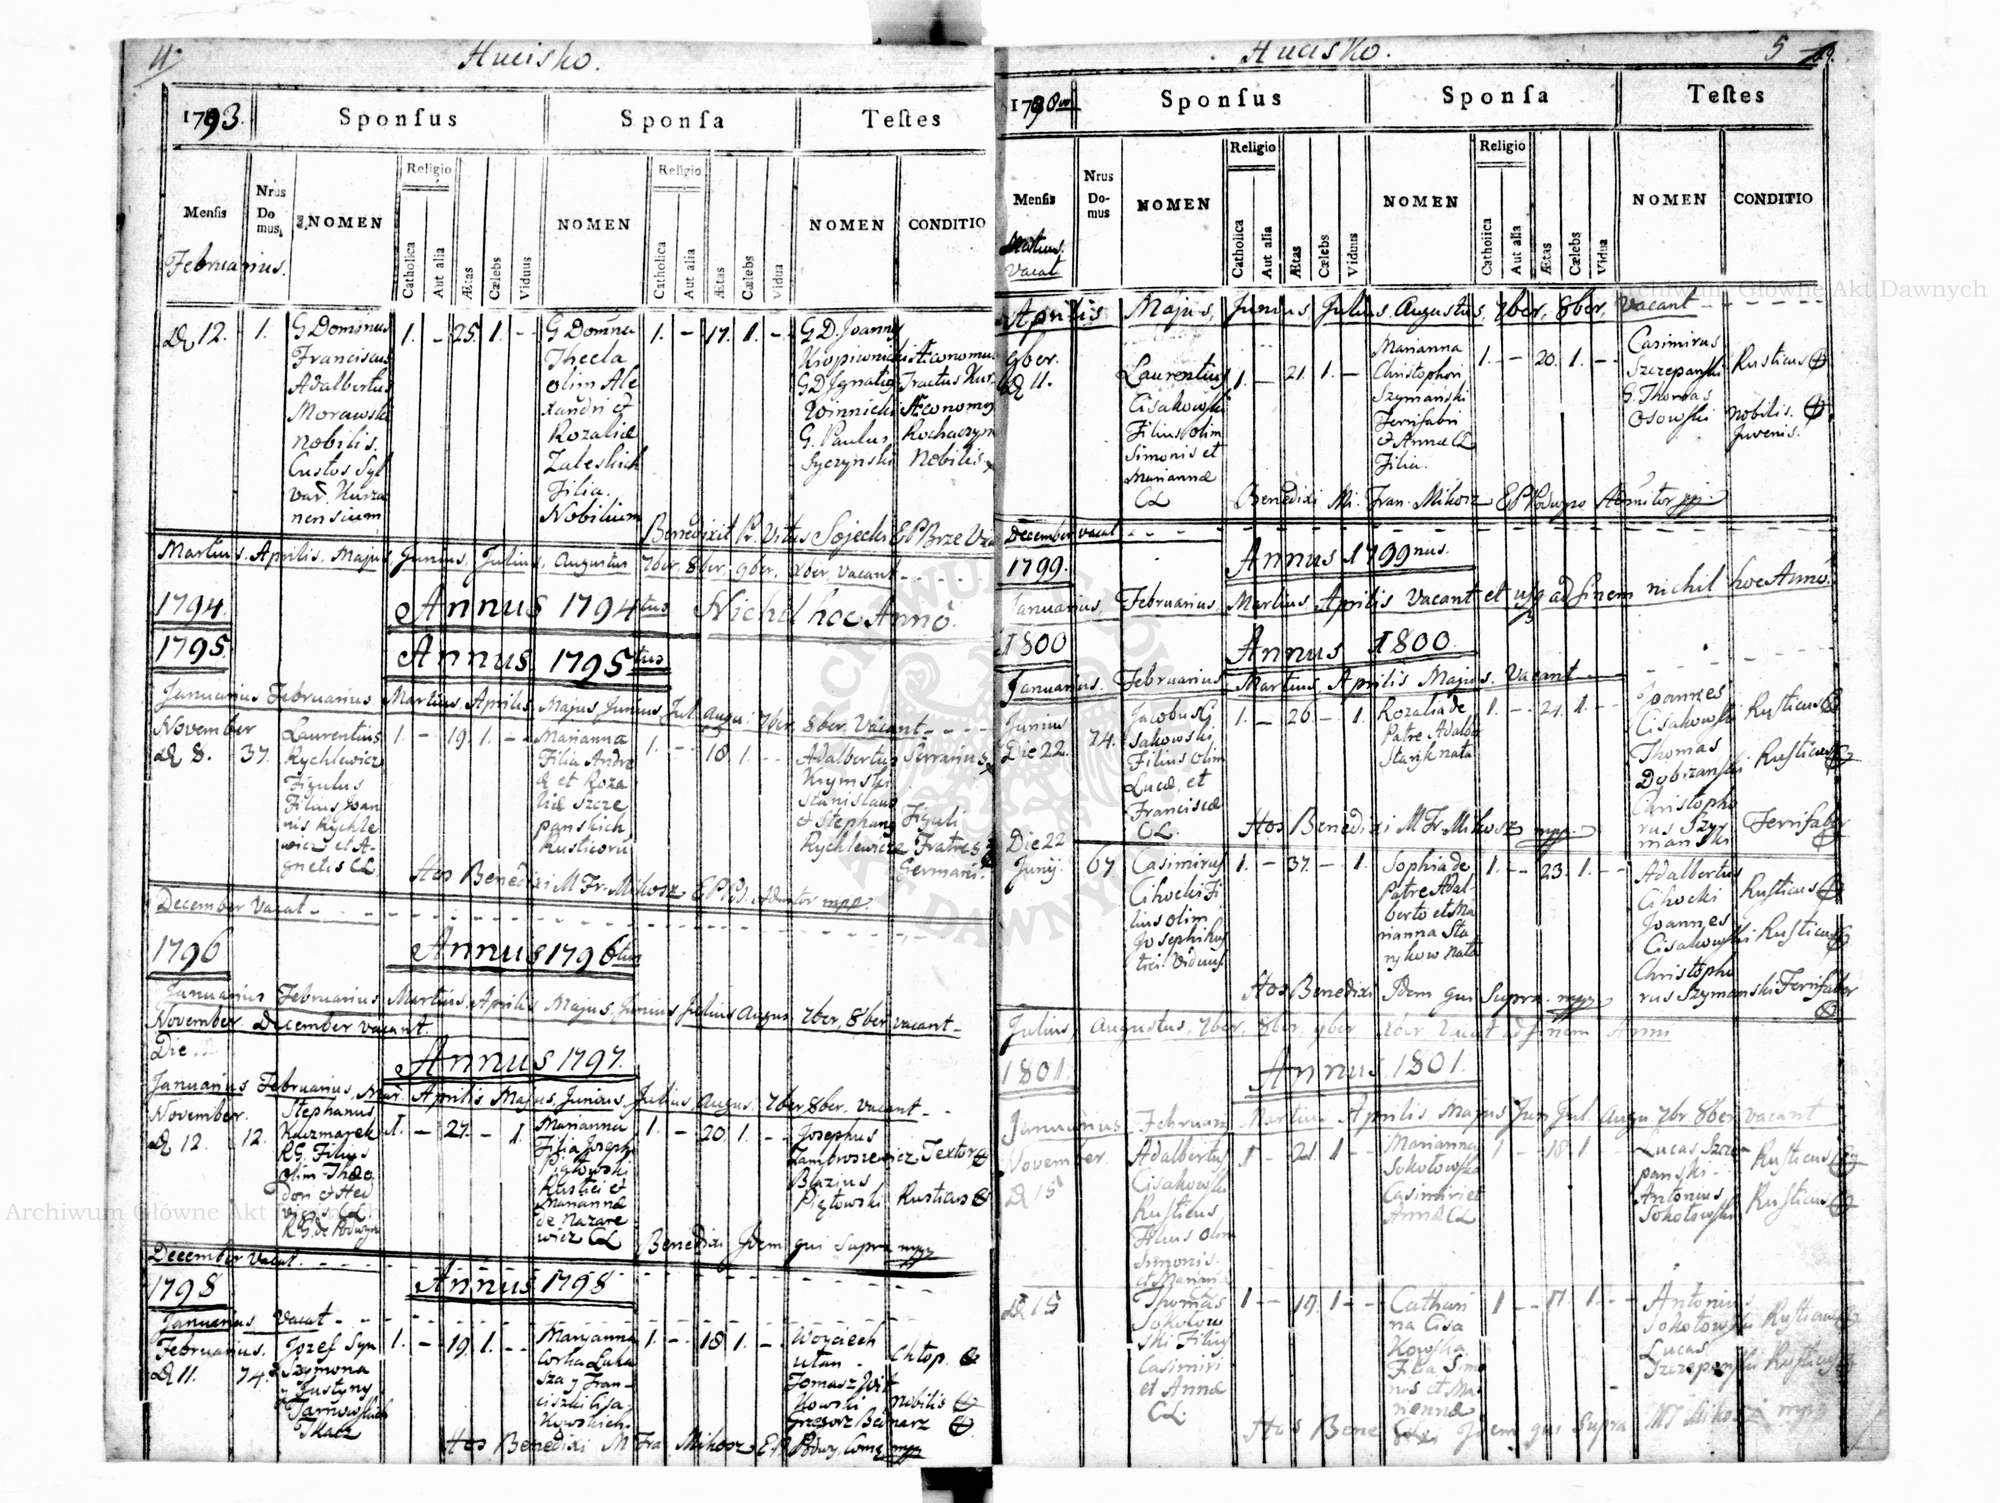 4
Hucisko.
1793.
Sponsus
Sponsa
Testes
Mensis
Nrus Domus
NOMEN
Religio
Catholica
Aut alia
Ætas
Cælebs
Viduus
NOMEN
Religio
Catholica
Aut alia
Ætas
Cælebs
Vidua
NOMEN
CONDITIO
Februarius.
D 12.
1.
G Dominus
Franciscus
Adalbertus
Morawski
nobilis.
Custos Syl
var. Kurza
nensium
1. - 25. 1. -
G Domina
Thecla
olim Ale
xandri et
Rozaliæ
Zaleskich
Filia.
Nobilium
1. - 17. 1. -
G. D. Joannes
G D Ignatius
Winnicki
G. Paulus
Syczynski
Tractus Kur
Nobilis
Benedixit Pr. Vitus Sojecki
Martius. Aprilis. Majus Junius. Julius. Augustus 7ber, 8ber, 9ber, Xber, vacant
1794.
Annus 1794tus Nichil hoc Anno.
1795
Annus 1795tus
Januarius Februarius Martius. Aprilis Majus Junius Jul. Augu: 7ber, 8ber. Vacant
November
D 8.
37.
Laurentius
Rychlewicz
Figulus
Filius Joan
nis Rychle
wicz et A-
gnetis CL
1. - 19. 1. -
Marianna
Filia Andre
æ et Roza
liæ Szcze
panskich
Rusticorū
1. - 18. 1. -
Adalbertus
Krymski
Stanislaus
et Stephang
Rychlewicze
Figuli
Fratres
Germani.
Hos Benedixi M Fr. Mikosz mpp.
December Vacat
1796
Annus 1796tus
Januarius Februarius Martius Aprilis Majus, Junius Julius Augus 7ber, 8ber vacant
November. December vacant.
Die
Annus 1797.
Januarius Februarius, Mar. Aprilis Majus, Junius, Julius Augus. 7ber 8ber. vacant
November.
D 12.
12.
Stephanus
Kaczmarek
RG. Filius
olim Theo
dori et Hed
1. - 27. - 1.
Marianna
Filia Joseph
Piątowski
Rustici et
Mariannæ
de Nazare
wicz CL
1. - 20. 1. -
Josephus
Zambrosiewicz Textor
Blazius
Piątowski
Rusticus
Benedixi Idem qui supra mpp
December Vacat.
1798
Annus 1798
Januarius Vacat
Februarius.
D 11.
74.
Jozef Syn
Szymona
y Justyny
Tarnowskich
Tkacz
1. - 19. 1. -
Maryanna
Corka Luka
sza y Fran-
ciszki Cisa-
kowskich.
1. - 18 1. -
Woyciech
Utan
Tomasz Wit
kowski
Grzegorz Bednarz
Chłop.
nobilis
Hos Benedixi M Fra Mikosz mpp
Hucisko.
5
Sponsus
Sponsa
Testes
Mensis
Nrus Domus
NOMEN
Religio
Catholica
Aut alia
Ætas
Cælebs
Viduus
NOMEN
Religio
Catholica
Aut alia
Ætas
Cælebs
Vidua
NOMEN
CONDITIO
Martius.
Vacat
Aprilis Majus, Junius, Julius, Augustus, 7ber, 8ber, Vacant
9ber.
D 11.
Laurentius
Cisakowski
Filius olim
Simonis et
Mariannæ
CL
1. - 21. 1. -
Marianna
Christophori
Szymański
Ferrifabri
et Annæ CL
Filia.
1. - 20. 1. -
Casimirus
Szczepanski
G. Thomas
Osowski
Rusticus
nobilis.
Juvenis.
Benedixi M. Fran. Mikosz
December vacat
1799.
Annus 1799nus.
Januarius, Februarius, Martius, Aprilis Vacant et usq ad finem nichil hoc Anno.
1800
Annus 1800.
Januarius. Februarius Martius, Aprilis Majus. Vacant
Junius
Die 22.
74.
Jacobus Ci
sakowski
Filius olim
Lucæ, et
Franciscæ
CL.
1. - 26. - 1.
Rozalia de
Patre Adalb
nata
1. - 21. 1. -
Joannes
Cisakowski
Thomas
Dobrzanski
Christopho
rus Szy
manski
Rusticus
Rusticus
Ferrifaber
Hos Benedixi M Fr. Mikosz mpp.
Die 22
Junij.
67
Casimirus
Cihocki Fi
lius olim
Josephi Rus
tici. Viduus
1. - 37. - 1.
Sophia de
Patre Adal-
berto et Ma
rianna Sta
nykow nata
1. - 23. 1. -
Adalbertus
Cihocki
Joannes
Cisakowski
Christopho
rus Szymanski
Rusticus
Rusticus
Ferrifaber
Hos Benedixi Idem qui Supra. mpp
Julius, Augustus, 7ber, 8ber, 9ber Xber Vacat ad finem Anni
1801.
Annus 1801.
Januarius Februari Martius Aprilis Majus Jun Jul Augu 7br 8ber vacant
November.
D 15
Adalbertus
Cisakowski
Rusticus
Filius olim
Simonis.
et Mariannæ
1 - 21. 1 -
Marianna
Sokołowska
Casimiri et
Annæ CL
1 - 18 1 -
Lucas Szcze
panski
Antonius
Sokołowski
Rusticus
Rusticus
D 15
Thomas
Sokołow
ski Filius
Casimiri
et Annæ
CL
1 - 19. 1 -
Cathari
na Cisa
kowska
Filia Simo
nis et Ma
riannæ
CL
1 - 17. 1 -
Antonius
Sokołowski Rusticus
Lucas
Szczepanski Rusticus
Hos Benedixi Idem qui Supra MF Mikosz mpp
Archiwum Główne Akt Dawnych
Archiwum Główne Akt Dawnych
ARCHIWUM GŁÓWNE AKT DAWNYCH